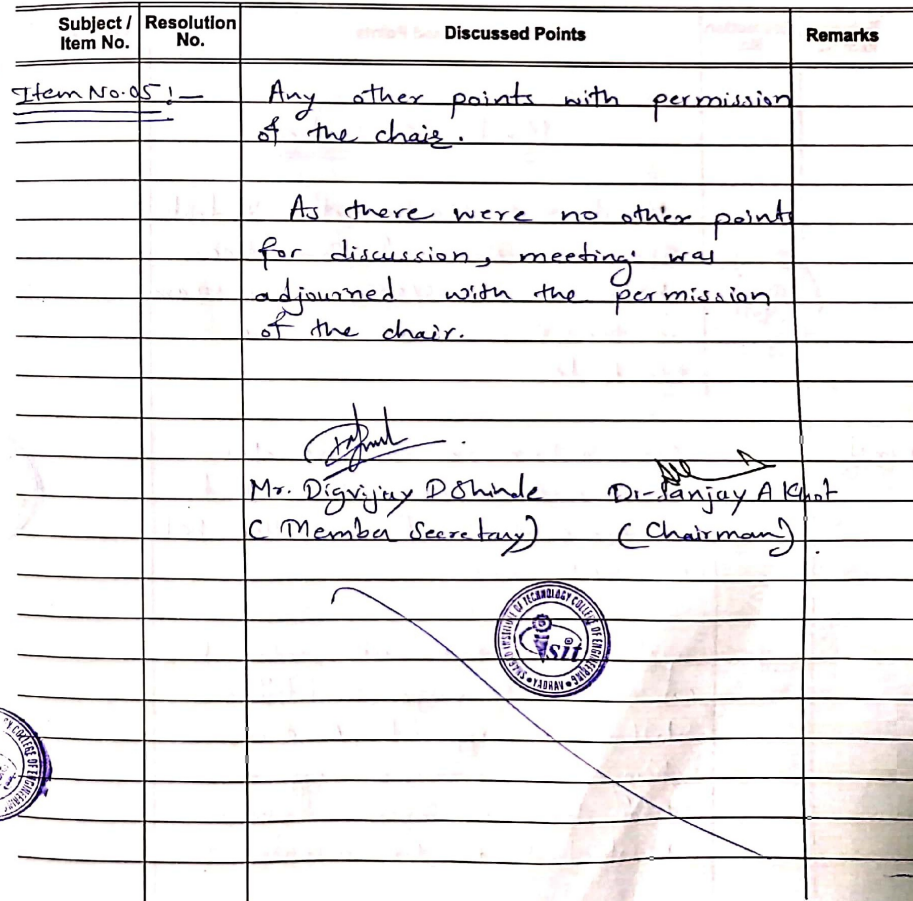 Subject / Item No. Resolution No. Discussed Points Remarks
Item No.05 :— Any other points with permission
of the chair.
As there were no other points
for discussion, meeting was
adjourned with the permission
of the chair.
Mr. Digvijay D Shinde Dr. Sanjay A Khot
(Member Secretary) (Chairman).
INSTITUTE OF TECHNOLOGY COLLEGE OF ENGINEERING
sit
YADRAV
COLLEGE OF ENGINEERING